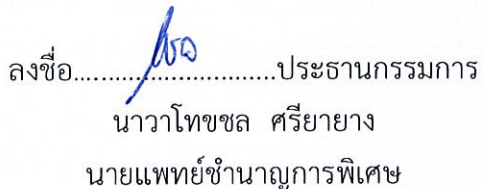 ลงชื่อ.................................ประธานกรรมการ
นาวาโทขชล ศรียายาง
นายแพทย์ชำนาญการพิเศษ